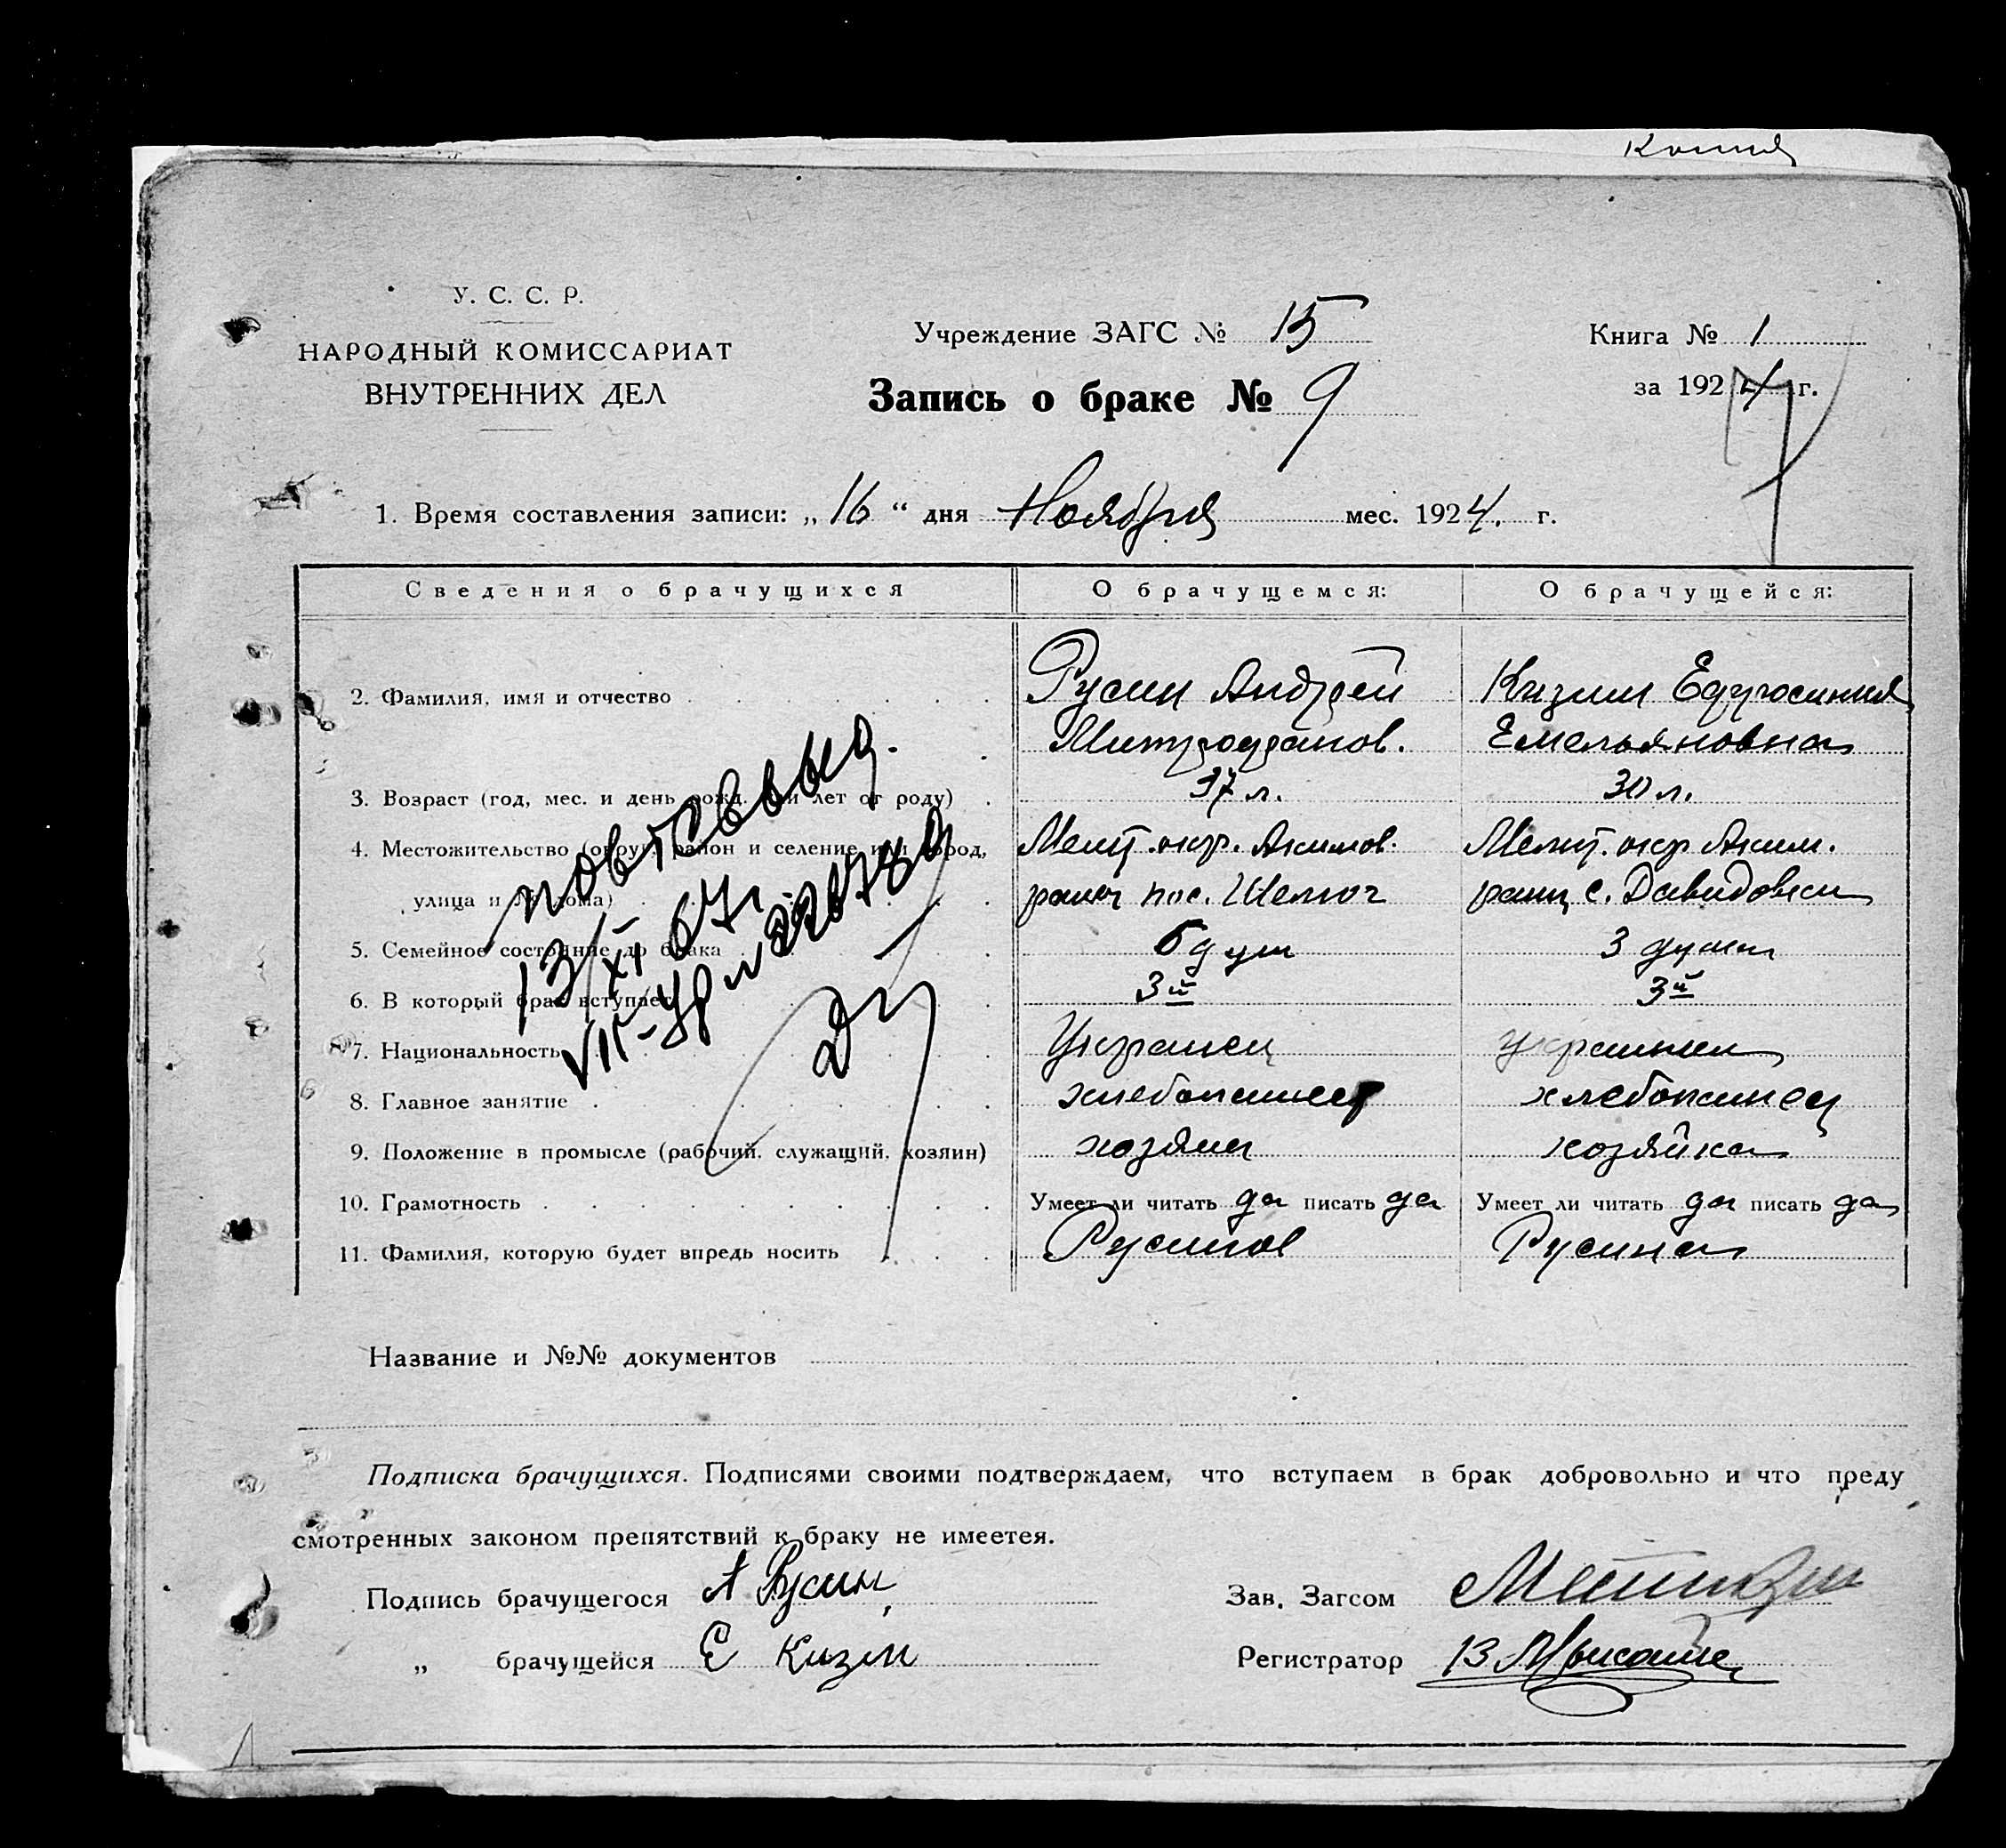 Копия
У. С. С. Р.
НАРОДНЫЙ КОМИССАРИАТ
ВНУТРЕННИХ ДЕЛ
Учреждение ЗАГС № 15
Запись о браке № 9
Книга № 1
за 1924 г.
7
1. Время составления записи: „16“ дня Ноября мес. 1924. г.
Сведения о брачущихся О брачущемся: О брачущейся:
2. Фамилия, имя и отчество Русин Андрей Кизим Ефросиния
Митрофанов. Емельяновна
3. Возраст (год, мес. и день рожд. или лет от роду) 37 л. 30 л.
4. Местожительство (округ, район и селение или город, Мелит. окр. Акимов. Мелит. окр Аким.
улица и № дома) район пос. Шелюг раин с. Давидовка
5. Семейное состояние до брака 6 душ 3 души
6. В который брак вступает 3й 3й
7. Национальность Украинец украинка
8. Главное занятие хлебопашец хлебопашец
9. Положение в промысле (рабочий, служащий, хозяин) хозяин хозяйка
10. Грамотность Умеет ли читать да писать да Умеет ли читать да писать да
11. Фамилия, которую будет впредь носить Русинов Русина
повт свыд.
13/XI 67г
VII-УР №
Название и №№ документов
Подписка брачущихся. Подписями своими подтверждаем, что вступаем в брак добровольно и что преду
смотренных законом препятствий к браку не имеетея.
Подпись брачущегося А Русин
„ брачущейся Е Кизим
Зав. Загсом
Регистратор